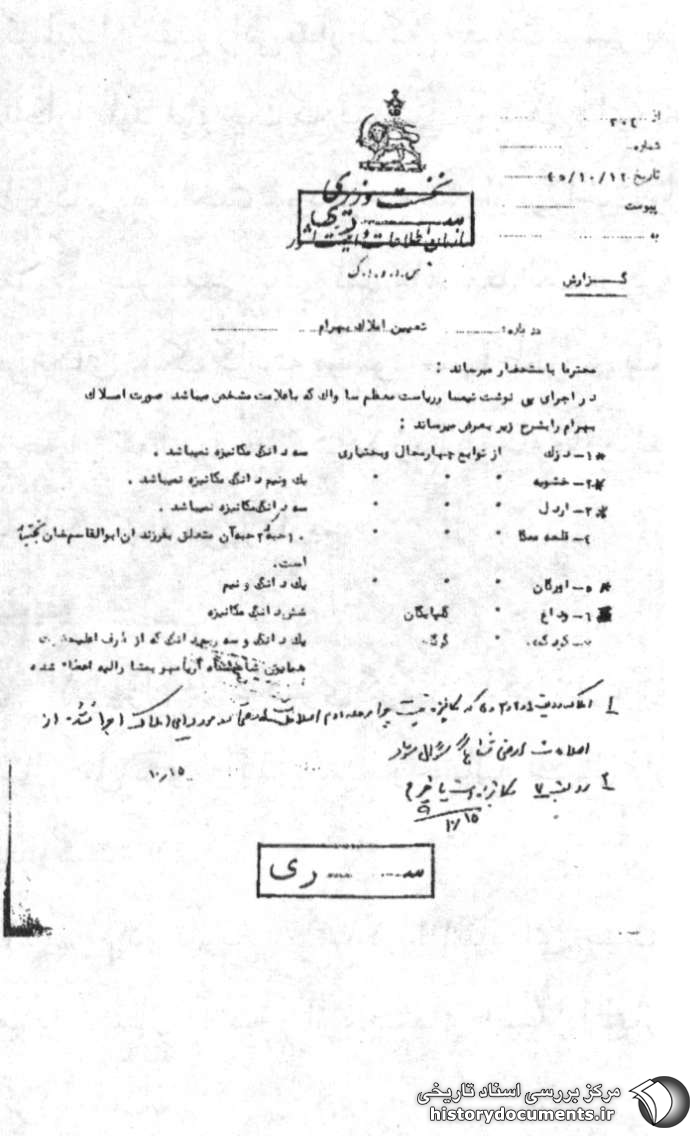 از ۳۰٤
شماره
تاریخ ٤٥/۱۰/۱۲
پیوست
به
نخست وزیری
سری
سازمان اطلاعات و امنیت کشور
س.ا.و.ا.ک
گـــزارش
درباره: تعیین املاک بهرام
محترما باستحضار میرساند :
در اجرای پی نوشت تیمسا ریاست معظم ساواک که باعلامت مشخص میباشد صورت املاک
بهرام رابشرح زیر بعرض میرساند :
*۱- دزک از توابع چهارمحال وبختیاری سه دانگ مکانیزه نمیباشد .
*۲- خشویه " " " یک ونیم دانگ مکانیزه نمیباشد .
*۳- اردل " " " سه دانگ مکانیزه نمیباشد .
٤- قلعه ممکا " " " ۱۰ حبه که ۲ حبه آن متعلق بفرزندان ابوالقاسم خان بختیار
است.
*۵- اورگان " " " یک دانگ و نیم
٦- وداغ " گلپایگان شش دانگ مکانیزه
۷- " یک دانگ و سه ربع دانگ که از طرف اعلیحضرت
همایون شاهنشاه آریامهر بمشارالیه اعطاء شده
۱ املاک ردیف ۱ و ۲ و ۳ و که مکانیزه نیست چرا مرحله دوم اصلاحات ارضی در مورد این املاک اجرا نشده از
اصلاحات ارضی سئوال شود
۱۰/۱۵
۲ ردیف ۷ مکانیزه است یا خیر
۱۰/۱۵
ســـری
مرکز بررسی اسناد تاریخی
historydocuments.ir